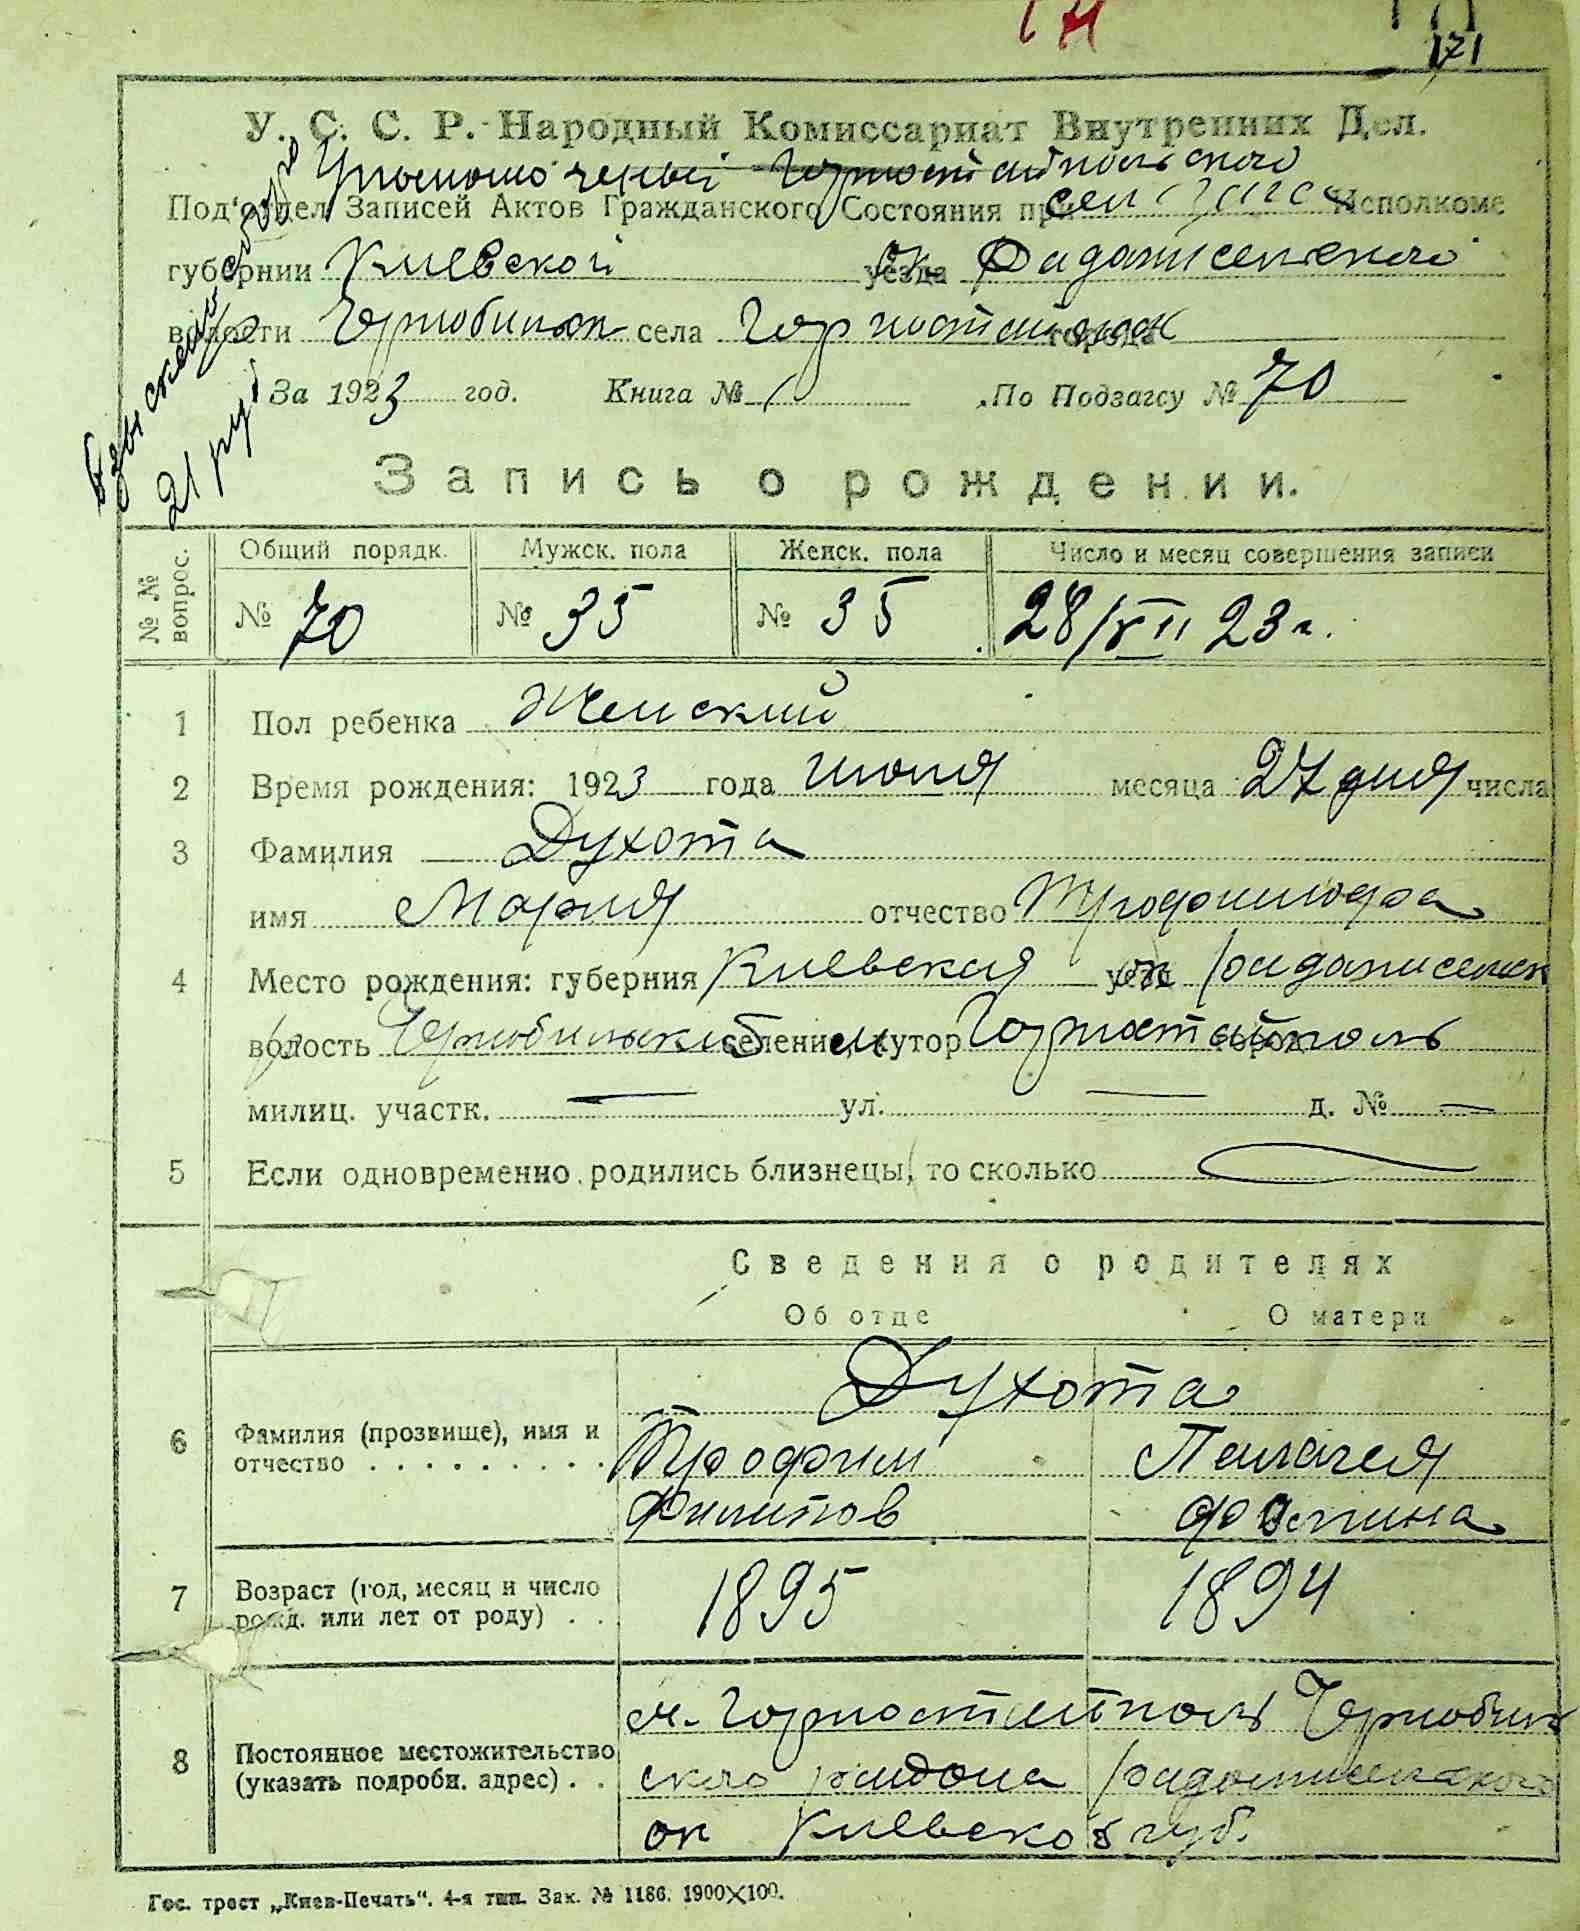 171
У. С. С. Р. Народный Комиссариат Внутренних Дел.
Уполномоченый Горностайпольского
Под'отдел Записей Актов Гражданского Состояния при Исполкоме
губернии Киевской уезда ок. Радомисельского
волости Чернобильск села Горностайпол города
За 1923 год. Книга № 1 По Подзагсу № 70
Взыскено сбору
21 руб
Запись о рождении.
№ № вопрос. Общий порядк. Мужск. пола Женск. пола Число и месяц совершения записи
№ 70 № 35 № 35 28/VII 23 г.
1 Пол ребенка Женский
2 Время рождения: 1923 года июля месяца 27 дня числа
3 Фамилия Духота
имя Мария отчество Трофимовна
4 Место рождения: губерния Киевская уезд ок Радомисельск
волость Чернобильский селение, хутор Горностайполь
милиц. участк. — ул. — д. № —
5 Если одновременно родились близнецы, то сколько —
Сведения о родителях
Об отце О матери
Духота
6 Фамилия (прозвище), имя и Трофим Пелагея
отчество . . . . . . . . . Филипов Фомина
7 Возраст (год, месяц и число 1895 1894
рожд. или лет от роду) . .
м. Горностайполь Чернобиль
8 Постоянное местожительство ского района Радомисельского
(указать подробн. адрес) . . ок Киевской губ.
Гос. трест „Киев-Печать“. 4-я тип. Зак. № 1186. 1900×100.